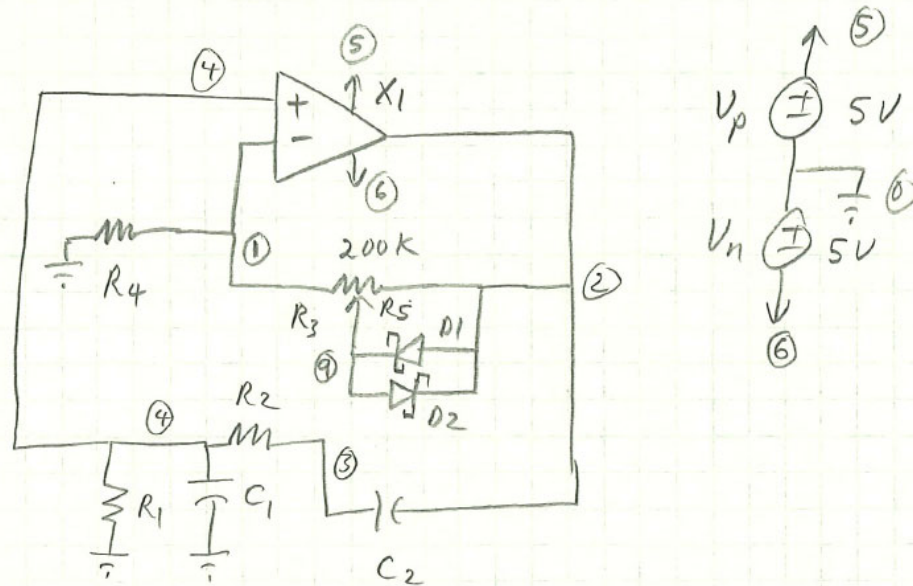 ⑤
④
X1
+
−
⑥
①
200K
②
R4
R3
R5
D1
⑨
D2
④
R2
③
R1
C1
C2
⑤
Vp
±
5V
⓪
Vn
±
5V
⑥